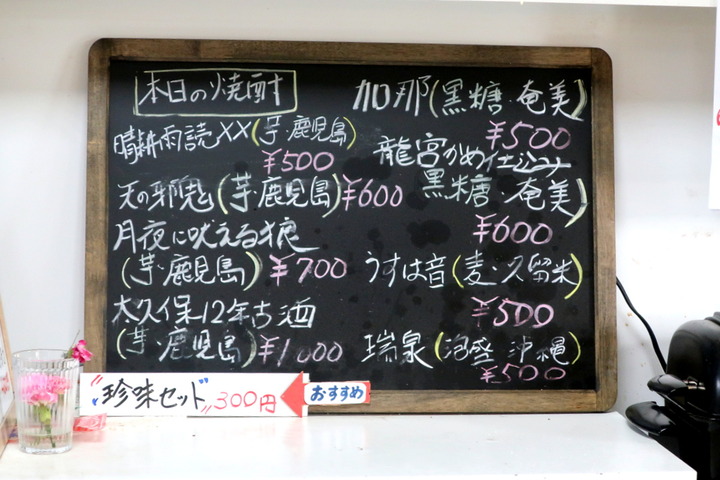 本日の焼酎
晴耕雨読××(芋・鹿児島)
¥500
天の邪鬼(芋・鹿児島)¥600
月夜に吠える狼
(芋・鹿児島)¥700
大久保12年古酒
(芋・鹿児島)¥1000
加那(黒糖・奄美)
¥500
龍宮かめ仕込み
黒糖 奄美)
¥600
うすは音(麦・久留米)
¥500
瑞泉(泡盛 沖縄)
¥500
"珍味セット"300円
おすすめ